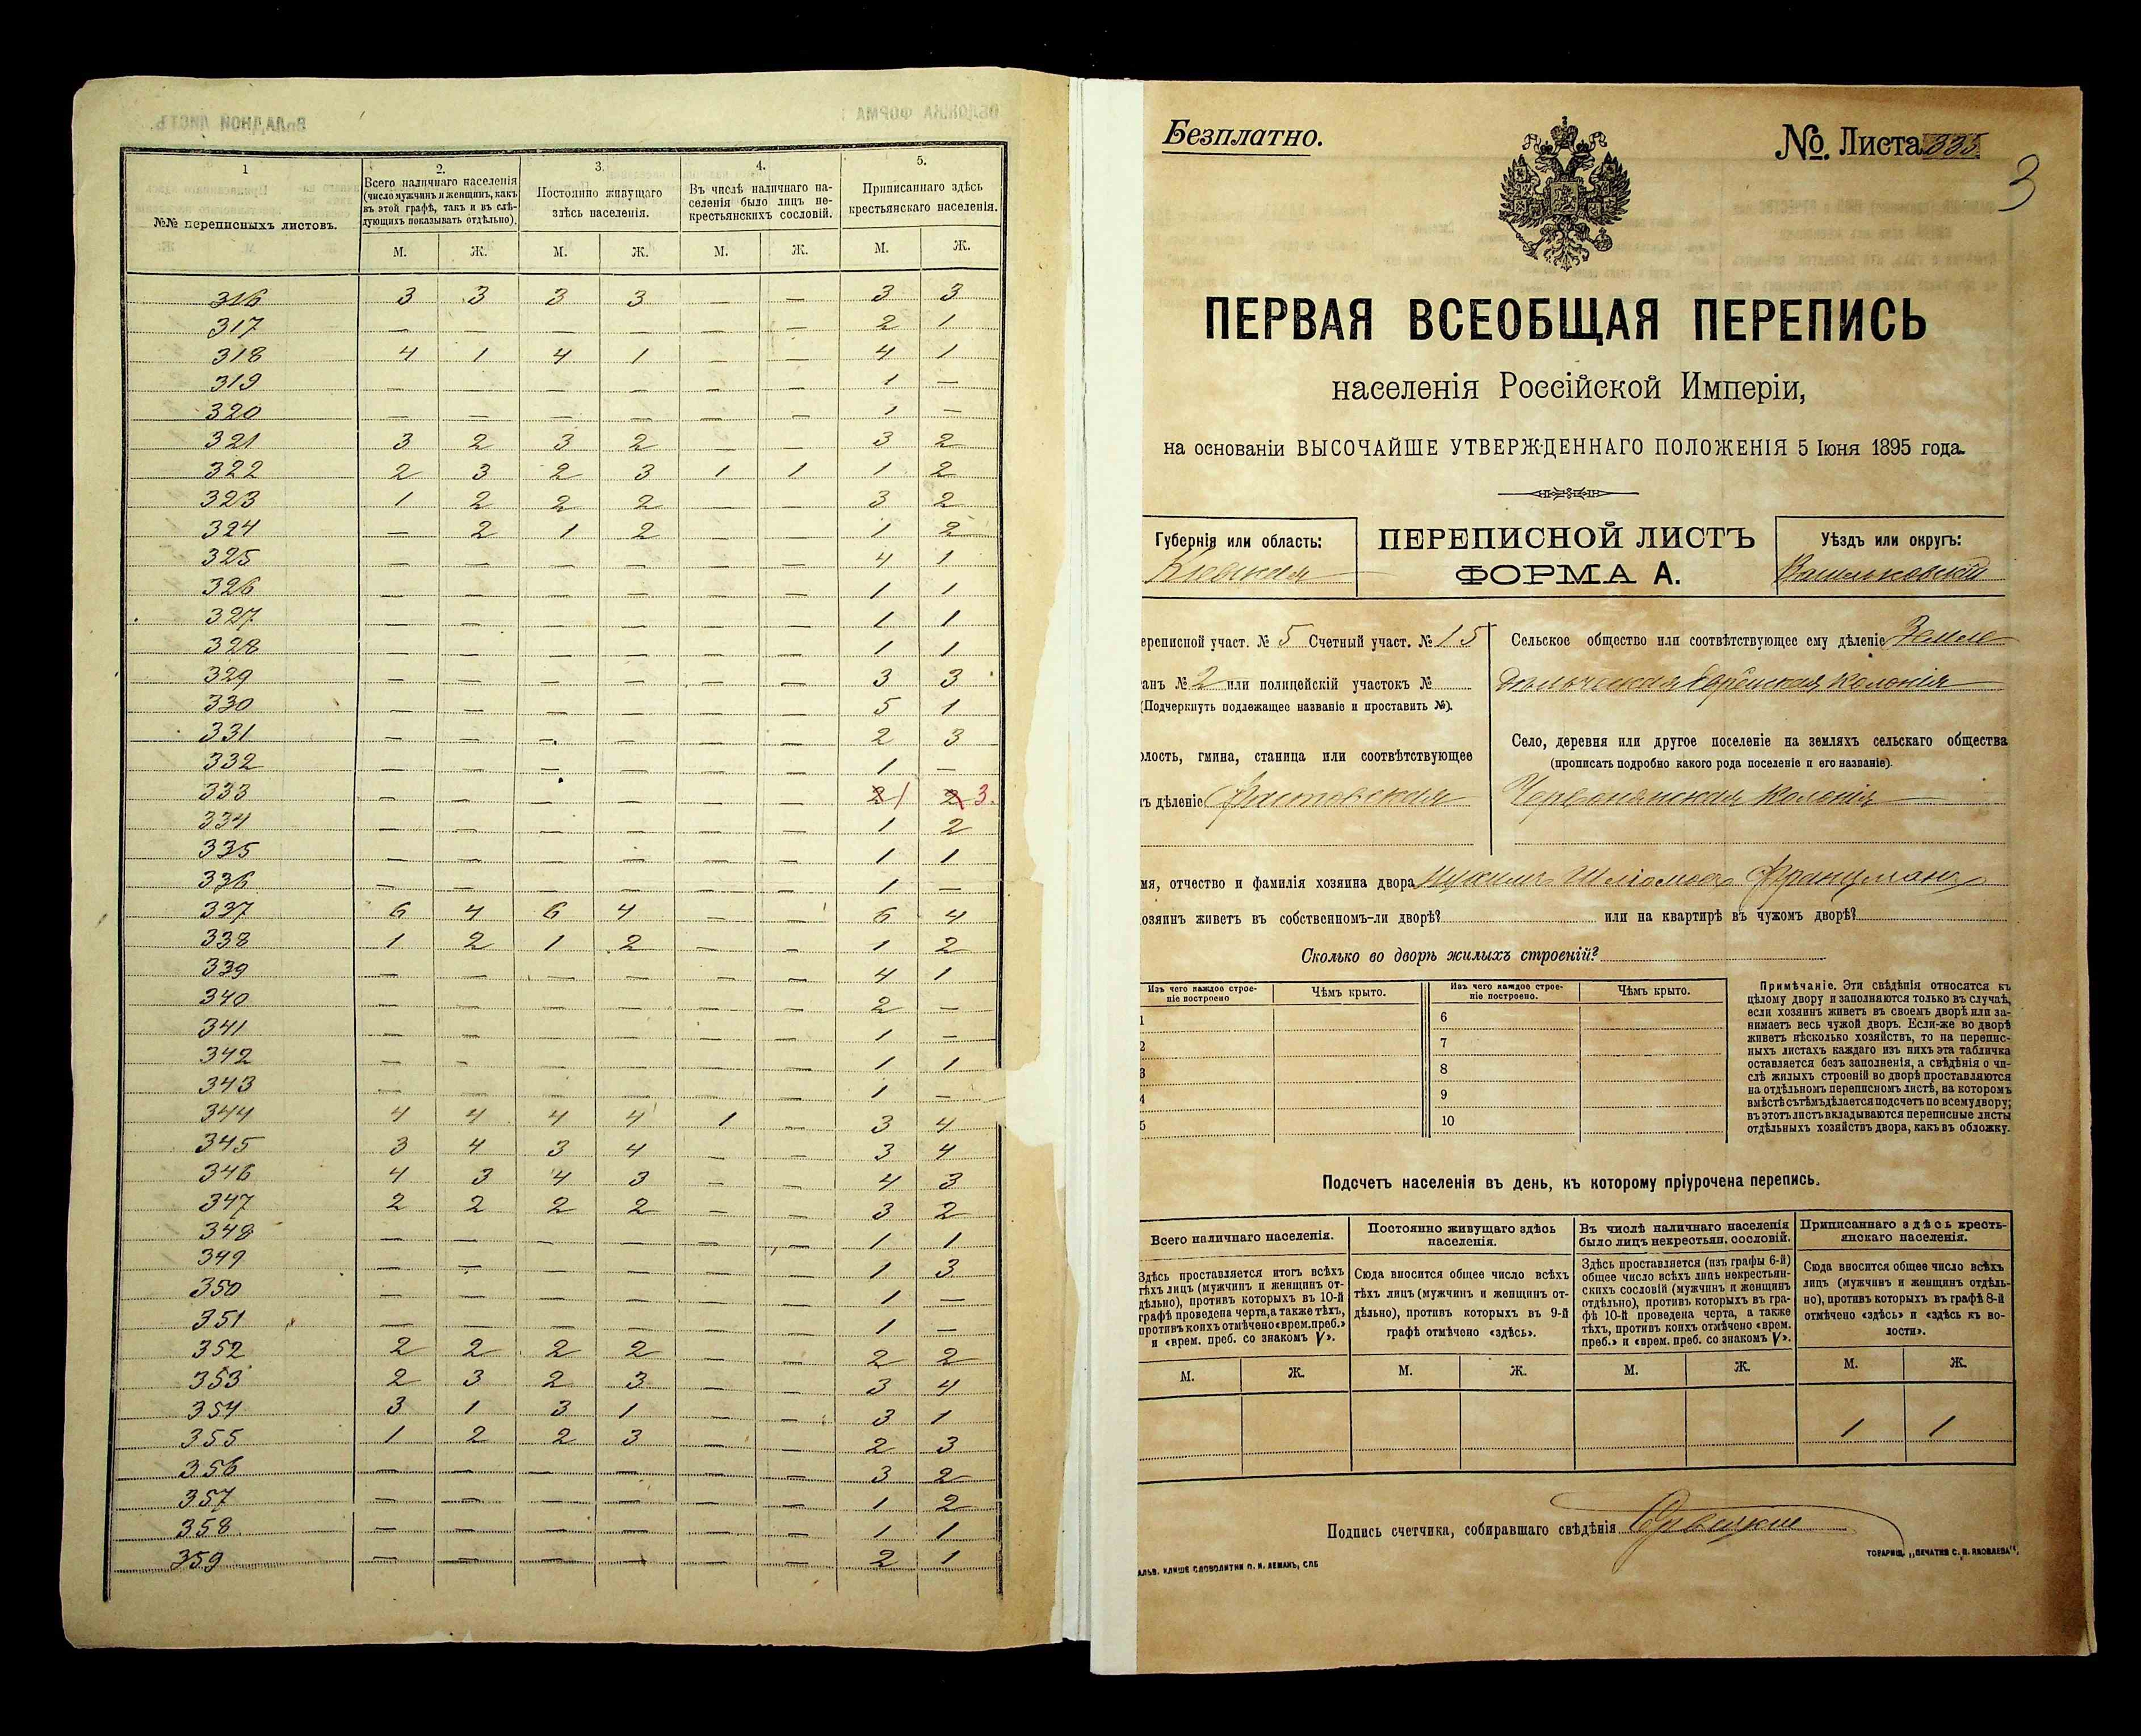 1
2.
3.
4.
5.
№№ переписныхъ листовъ.
Всего наличнаго населенія
(число мужчинъ и женщинъ, какъ
въ этой графѣ, такъ и въ слѣ-
дующихъ показывать отдѣльно).
Постоянно живущаго
здѣсь населенія.
Въ числѣ наличнаго на-
селенія было лицъ не-
крестьянскихъ сословій.
Приписаннаго здѣсь
крестьянскаго населенія.
М. Ж. М. Ж. М. Ж. М. Ж.
316 3 3 3 3 — — 3 3
317 — — — — — — 2 1
318 4 1 4 1 — — 4 1
319 — — — — — — 1 —
320 — — — — — — 1 —
321 3 2 3 2 — — 3 2
322 2 3 2 3 1 1 1 2
323 1 2 2 2 — — 3 2
324 — 2 1 2 — — 1 2
325 — — — — — — 4 1
326 — — — — — — 1 1
327 — — — — — — 1 1
328 — — — — — — 1 1
329 — — — — — — 3 3
330 — — — — — — 5 1
331 — — — — — — 2 3
332 — — — — — — 1 —
333 — — — — — — 2 1 2 3.
334 — — — — — — 1 2
335 — — — — — — 1 1
336 — — — — — — 1 —
337 6 4 6 4 — — 6 4
338 1 2 1 2 — — 1 2
339 — — — — — — 4 1
340 — — — — — — 2 —
341 — — — — — — 1 —
342 — — — — — — 1 1
343 — — — — — — 1 —
344 4 4 4 4 1 — 3 4
345 3 4 3 4 — — 3 4
346 4 3 4 3 — — 4 3
347 2 2 2 2 — — 3 2
348 — — — — — — 1 1
349 — — — — — — 1 3
350 — — — — — — 1 —
351 — — — — — — 1 —
352 2 2 2 2 — — 2 2
353 2 3 2 3 — — 3 4
354 3 1 3 1 — — 3 1
355 1 2 2 3 — — 2 3
356 — — — — — — 3 2
357 — — — — — — 1 2
358 — — — — — — 1 1
359 — — — — — — 2 1
Безплатно.
№. Листа 335
3
ПЕРВАЯ ВСЕОБЩАЯ ПЕРЕПИСЬ
населенія Россійской Имперіи,
на основаніи ВЫСОЧАЙШЕ УТВЕРЖДЕННАГО ПОЛОЖЕНІЯ 5 Іюня 1895 года.
Губернія или область:
Кіевская
ПЕРЕПИСНОЙ ЛИСТЪ
ФОРМА А.
Уѣздъ или округъ:
Васильковскій
ереписной участ. № 5 Счетный участ. № 15
анъ № 2 или полицейскій участокъ №
(Подчеркнуть подлежащее названіе и проставить №).
олость, гмина, станица или соотвѣтствующее
ъ дѣленіе Фастовская
Сельское общество или соотвѣтствующее ему дѣленіе Земле
дѣльческая Еврейская колонія
Село, деревня или другое поселеніе на земляхъ сельскаго общества
(прописать подробно какого рода поселеніе и его названіе).
Червонянская колонія
мя, отчество и фамилія хозяина двора Шліомова Францманъ
озяинъ живетъ въ собственномъ-ли дворѣ? или на квартирѣ въ чужомъ дворѣ?
Сколько во дворѣ жилыхъ строеній?
Изъ чего каждое строе-
ніе построено
Чѣмъ крыто.
Изъ чего каждое строе-
ніе построено.
Чѣмъ крыто.
1 6
2 7
3 8
4 9
5 10
Примѣчаніе. Эти свѣдѣнія относятся къ
цѣлому двору и заполняются только въ случаѣ,
если хозяинъ живетъ въ своемъ дворѣ или за-
нимаетъ весь чужой дворъ. Если-же во дворѣ
живетъ нѣсколько хозяйствъ, то на перепис-
ныхъ листахъ каждаго изъ нихъ эта табличка
оставляется безъ заполненія, а свѣдѣнія о чи-
слѣ жилыхъ строеній во дворѣ проставляются
на отдѣльномъ переписномъ листѣ, на которомъ
вмѣстѣ съ тѣмъ дѣлается подсчетъ по всему двору;
въ этотъ листъ вкладываются переписные листы
отдѣльныхъ хозяйствъ двора, какъ въ обложку.
Подсчетъ населенія въ день, къ которому пріурочена перепись.
Всего наличнаго населенія.
Здѣсь проставляется итогъ всѣхъ
тѣхъ лицъ (мужчинъ и женщинъ от-
дѣльно), противъ которыхъ въ 10-й
графѣ проведена черта, а также тѣхъ,
противъ коихъ отмѣчено «врем. преб.»
и «врем. преб. со знакомъ V».
Постоянно живущаго здѣсь
населенія.
Сюда вносится общее число всѣхъ
тѣхъ лицъ (мужчинъ и женщинъ от-
дѣльно), противъ которыхъ въ 9-й
графѣ отмѣчено «здѣсь».
Въ числѣ наличнаго населенія
было лицъ некрестьян. сословій.
Здѣсь проставляется (изъ графы 6-й)
общее число всѣхъ лицъ некрестьян-
скихъ сословій (мужчинъ и женщинъ
отдѣльно), противъ которыхъ въ гра-
фѣ 10-й проведена черта, а также
тѣхъ, противъ коихъ отмѣчено «врем.
преб.» и «врем. преб. со знакомъ V».
Приписаннаго здѣсь кресть-
янскаго населенія.
Сюда вносится общее число всѣхъ
лицъ (мужчинъ и женщинъ отдѣль-
но), противъ которыхъ въ графѣ 8-й
отмѣчено «здѣсь» и «здѣсь къ во-
лости».
М. Ж. М. Ж. М. Ж. М. Ж.
1 1
Подпись счетчика, собиравшаго свѣдѣнія
АЛЬВ. КЛИШЕ СЛОВОЛИТНИ О. И. ЛЕМАНЪ, СПБ
ТОВАРИЩ. „ПЕЧАТНЯ С. П. ЯКОВЛЕВА".